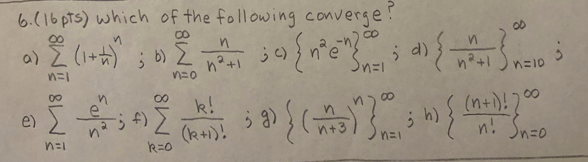 6.(16pts) which of the following converge?
a) \sum_{n=1}^{\infty} (1+\frac{1}{n})^n ; b) \sum_{n=0}^{\infty} \frac{n}{n^2+1} ; c) \{ n^2 e^{-n} \}_{n=1}^{\infty} ; d) \{ \frac{n}{n^2+1} \}_{n=10}^{\infty} ;
e) \sum_{n=1}^{\infty} \frac{e^n}{n^2} ; f) \sum_{k=0}^{\infty} \frac{k!}{(k+1)!} ; g) \{ (\frac{n}{n+3})^n \}_{n=1}^{\infty} ; h) \{ \frac{(n+1)!}{n!} \}_{n=0}^{\infty}